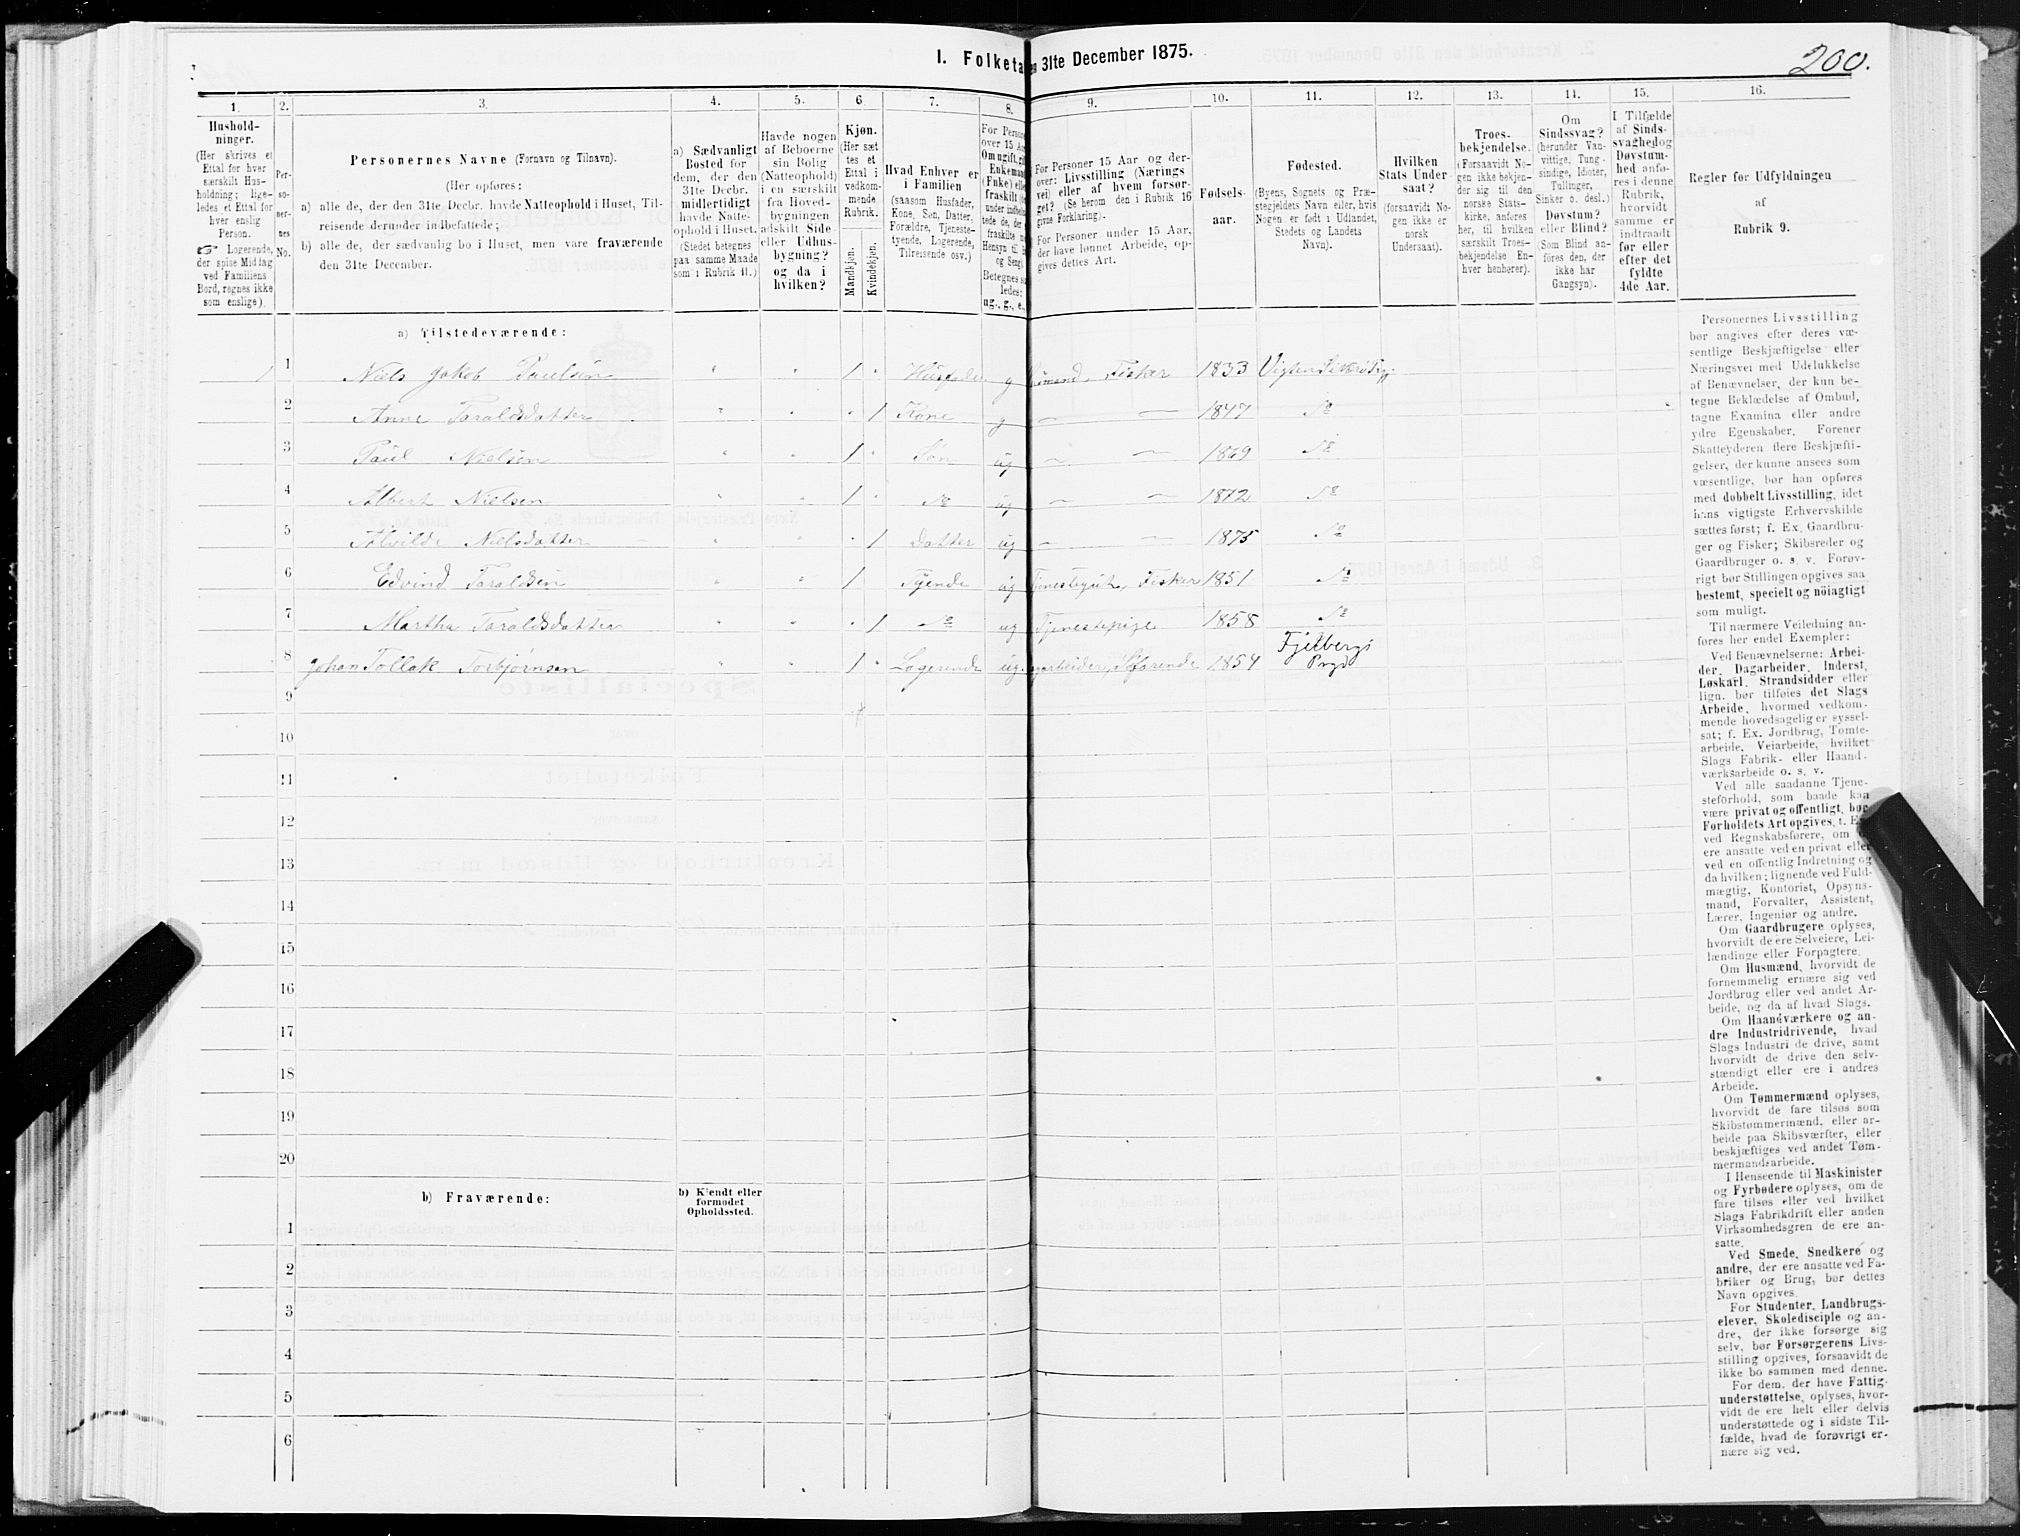 I. Folketa
en 31te December 1875.
200.
1.
2.
3.
4.
5.
6.
7.
8.
9.
10.
11.
12.
13.
14.
15.
16.
Hushold-
ninger.
(Her skrives et
Ettal for hver
særskilt Hus-
holdning; lige-
ledes et Ettal for
hver enslig
Person.
☞ Logerende,
der spise Middag
ved Familiens
Bord, regnes ikke
som enslige).
Per-
so-
ner-
nes
No.
Personernes Navne (Fornavn og Tilnavn).
(Her opføres:
a) alle de, der den 31te Decbr. havde Natteophold i Huset, Til-
reisende derunder indbefattede;
b) alle de, der sædvanlig bo i Huset, men vare fraværende
den 31te December.
a) Sædvanligt
Bosted for
dem, der den
31te Decbr.
midlertidigt
havde Natte-
ophold i Huset.
(Stedet betegnes
paa samme Maade
som i Rubrik 11.)
Havde nogen
af Beboerne
sin Bolig
(Natteophold)
i en særskilt
fra Hoved-
bygningen
adskilt Side-
eller Udhus-
bygning?
og da i
hvilken?
Kjøn.
(Her sæt-
tes et
Ettal i
vedkom-
mende
Rubrik.
Mandkjøn.
Kvindekjøn.
Hvad Enhver er
i Familien
(saasom Husfader,
Kone, Søn, Datter,
Forældre, Tjeneste-
tyende, Logerende,
Tilreisende osv.)
For Person
over 15 Aar
Om ugift, gift
Enkemand
(Enke) elle
fraskilt
under indbefat
tede de, der
fraskilte
Hensyn til
og Seng.
Betegnes saa
ledes:
ug., g., e.,
For Personer 15 Aar og der-
over: Livsstilling (Nærings
vei) eller af hvem forsør-
get? (Se herom den i Rubrik 16
givne Forklaring).
For Personer under 15 Aar,
der have lønnet Arbeide, op-
gives dettes Art.
Fødsels-
aar.
Fødested.
(Byens, Sognets og Præ-
stegjeldets Navn eller, hvis
Nogen er født i Udlandet,
Stedets og Landets
Navn).
Hvilken
Stats Under-
saat?
(forsaavidt No-
gen ikke er
norsk
Undersaat).
Troes-
bekjendelse.
(Forsaavidt No-
gen ikke bekjen-
der sig til den
norske Stats-
kirke, anføres
her, til hvilken
særskilt Troes-
bekjendelse En-
hver henhører).
Om
Sindssvag?
(herunder Van-
vittige, Tung-
sindige, Idioter,
Tullinger,
Sinker o. desl.)
Døvstum?
eller Blind?
(Som Blind an-
føres den, der
ikke har
Gangsyn).
I Tilfælde
af Sinds-
svaghed og
Døvstum-
hed anfø-
res i denne
Rubrik,
hvorvidt
samme er
indtraadt
før eller
efter det
fyldte
4de Aar.
Regler for Udfyldningen
af
Rubrik 9.
a) Tilstedeværende:
1 1 Niels Jakob Paulsen 1 Husfader g mand, Fisker 1833
2 Anne Taraldsdatter 1 Kone g 1847 Do
3 Paul Nielsen 1 Søn ug 1869 Do
4 Albert Nielsen 1 Do ug 1872 Do
5 Alvilde Nielsdatter 1 Datter ug 1875 Do
6 Edvind Taraldsen 1 Tyende ug Tjenestegut, Fisker 1851 Do
7 Martha Taraldsdatter 1 Do ug Tjenestepige 1858 Do
8 Johan Tollak Torbjørnsen 1 Logerende ug garbeider, Søfarende 1854 Fjelbergs
Prgd
9
10
11
12
13
14
15
16
17
18
19
20
b) Fraværende:
b) Kjendt eller
formodet
Opholdssted.
1
2
3
4
5
6
Personernes Livsstilling
bør angives efter deres væ-
sentlige Beskjæftigelse eller
Næringsvei med Udelukkelse
af Benævnelser, der kun be-
tegne Beklædelse af Ombud,
tagne Examina eller andre
ydre Egenskaber. Forener
Skatteyderen flere Beskjæfti-
gelser, der kunne ansees som
væsentlige, bør han opføres
med dobbelt Livsstilling, idet
hans vigtigste Erhvervskilde
sættes først; f. Ex. Gaardbru-
ger og Fisker; Skibsreder og
Gaardbruger o. s. v. Forøv-
rigt bør Stillingen opgives saa
bestemt, specielt og nöiagtigt
som muligt.
Til nærmere Veiledning an-
føres her endel Exempler:
Ved Benævnelserne: Arbei-
der, Dagarbeider, Inderst,
Løskarl, Strandsidder eller
lign. bør tilføies det Slags
Arbeide, hvormed vedkom-
mende hovedsagelig er syssel-
sat; f. Ex. Jordbrug, Tomte-
arbeide, Veiarbeide, hvilket
Slags Fabrik- eller Haand-
værksarbeide o. s. v.
Ved alle saadanne Tjene-
steforhold, som baade kan
være privat og offentligt, bør
Forholdets Art opgives, t. Ex.
ved Regnskabsførere, om
ere ansatte ved en privat eller
ved en offentlig Indretning og
da hvilken; lignende ved Fuld-
mægtig, Kontorist, Opsyns-
mand, Forvalter, Assistent,
Lærer, Ingeniør og andre.
Om Gaardbrugere oplyses,
hvorvidt de ere Selveiere, Lei-
lændinge eller Forpagtere.
Om Husmænd, hvorvidt de
fornemmelig ernære sig ved
Jordbrug eller ved andet Ar-
beide, og da af hvad Slags.
Om Haandværkere og an-
dre Industridrivende, hvad
Slags Industri de drive, samt
hvorvidt de drive den selv-
stændigt eller ere i andres
Arbeide.
Om Tømmermænd oplyses,
hvorvidt de fare tilsøs som
Skibstømmermænd, eller ar-
beide paa Skibsværfter, eller
beskjæftiges ved andet Tøm-
mermandsarbeide.
I Henseende til Maskinister
og Fyrbødere oplyses, om de
fare tilsøs eller ved hvilket
Slags Fabrikdrift eller anden
Virksomhedsgren de ere an-
satte.
Ved Smede, Snedkere og
andre, der ere ansatte ved Fa-
briker og Brug, bør dettes
Navn opgives.
For Studenter, Landbrugs-
elever, Skoledisciple og an-
dre, der ikke forsørge sig
selv, bør Forsørgerens Livs-
stilling opgives, forsaavidt de
ikke bo sammen med denne.
For dem, der have Fattig-
understøttelse, oplyses, hvor-
vidt de ere helt eller delvis
understøttede og i sidste Til-
fælde, hvad de forøvrigt er-
nære sig ved.